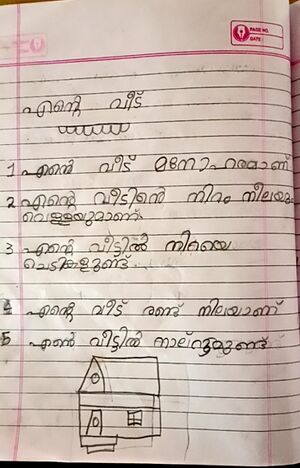 PAGE NO.
DATE
എന്റെ വീട്
1 എൻെ വീട് മനോഹരമാണ്
2 എന്റെ വീടിൻെ നിറം നീലയും
വെള്ളയുമാണ്
3 എന്റെ വീട്ടിൽ നിറയെ
ചെടികളുണ്ട്
4 എന്റെ വീട് രണ്ട് നിലയാണ്
5 എൻെ വീട്ടിൽ നാല്റൂമുണ്ട്